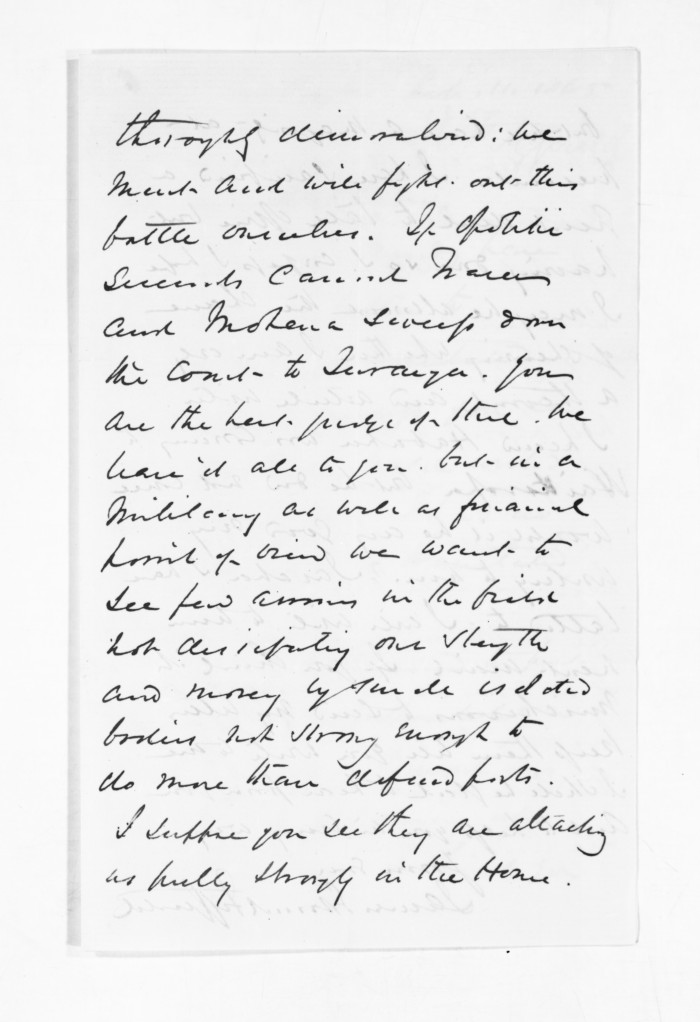 thoroughly demoralised: we
must and will fight out this
battle ourselves. If Opotiki
succeeds cannot
and Mokena sweep down
the Coast to Tauranga. You
are the best judge of this. We
leave it all to you. but in a
Military as well as financial
point of view we want to
see few armies in the field
not dissipating our strength
and money by small isolated
bodies not strong enough to
do more than defend posts.
I suppose you see they are attacking
us pretty strongly in the House.